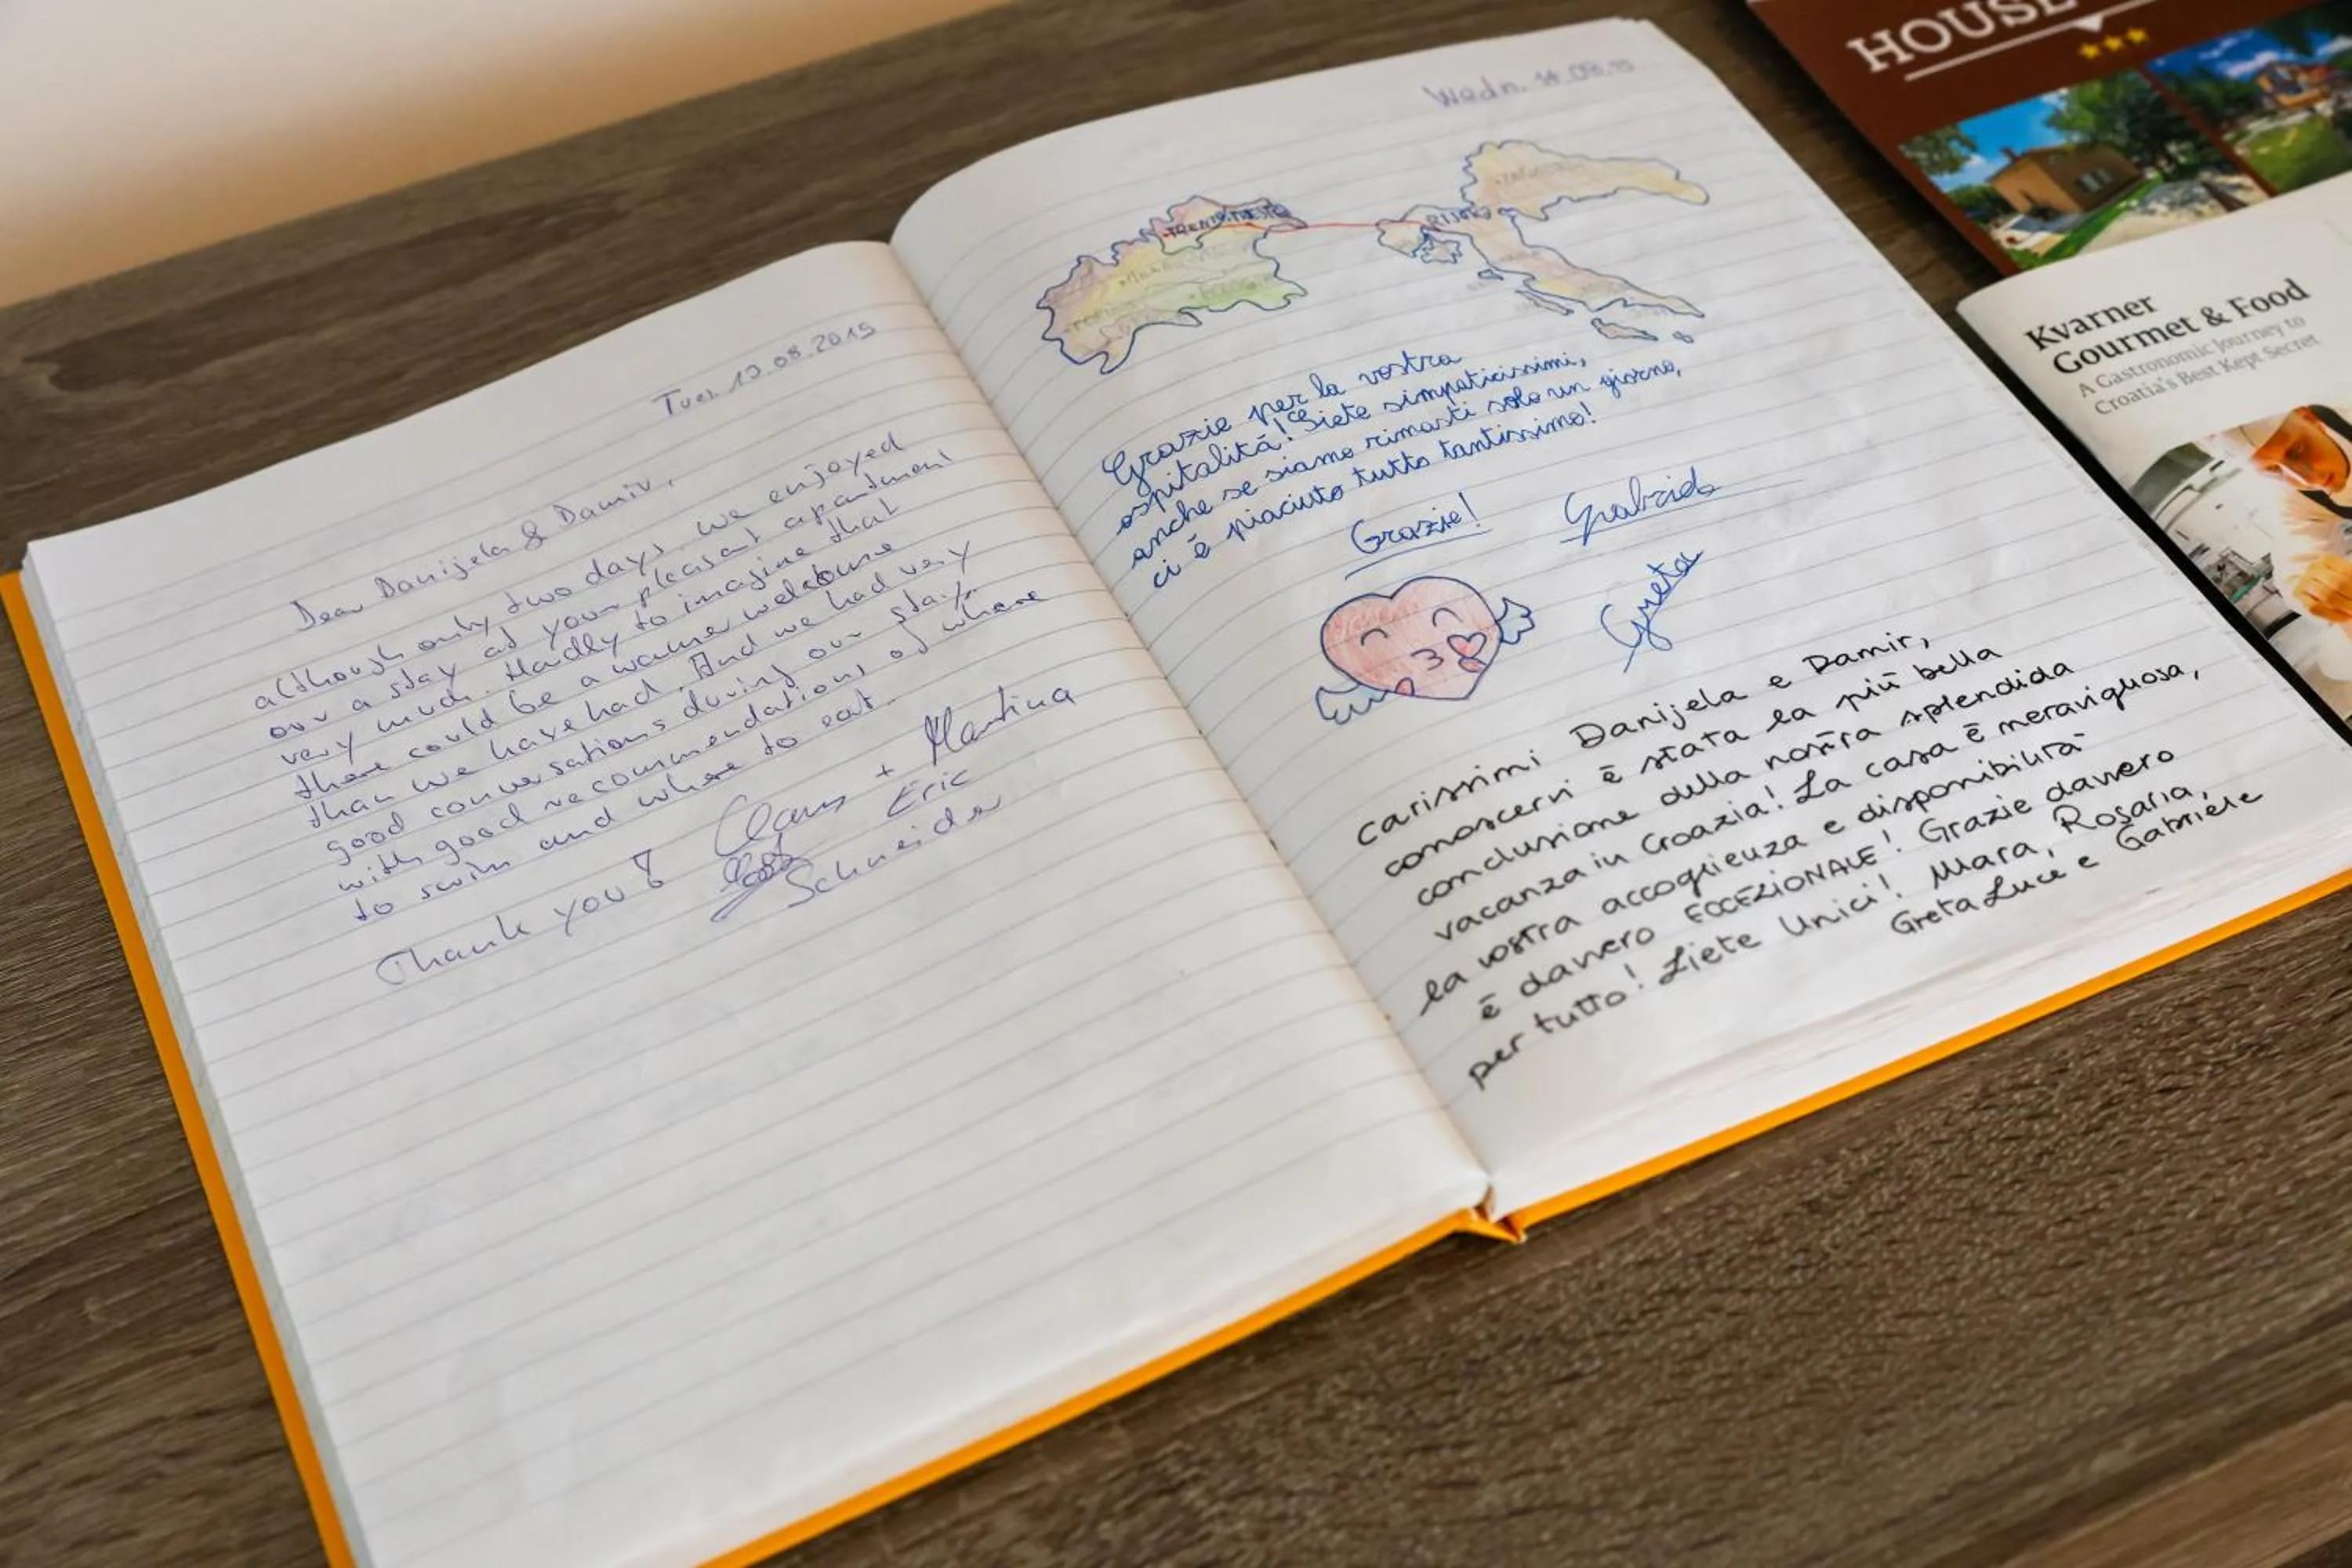 Tues. 13.08.2019
Dear Danijela & Damir,
although only two days, we enjoyed
our a stay at your pleasant apartment
very much. Hardly to imagine that
there could be a warmer welcome
than we have had. And we had very
good conversations during our stay,
with good recommendations of where
to swim and where to eat.
Thank you!
Claus + Martina
Eric
Schneider
Wedn. 14.08.19
TRENTO
RIJEKA
Grazie per la vostra
ospitalitá! Siete simpaticissimi,
anche se siamo rimasti solo un giorno,
ci è piaciuto tutto tantissimo!
Grazie!
Gabriele
Greta
Carissimi Danijela e Damir,
conoscervi è stata la più bella
conclusione della nostra splendida
vacanza in Croazia! La casa è meravigliosa,
la vostra accoglienza e disponibilità
è davvero ECCEZIONALE! Grazie davvero
per tutto! Siete Unici! Mara, Rosaria,
Greta Luce e Gabriele
HOUSE
Kvarner
Gourmet & Food
A Gastronomic Journey to
Croatia's Best Kept Secret